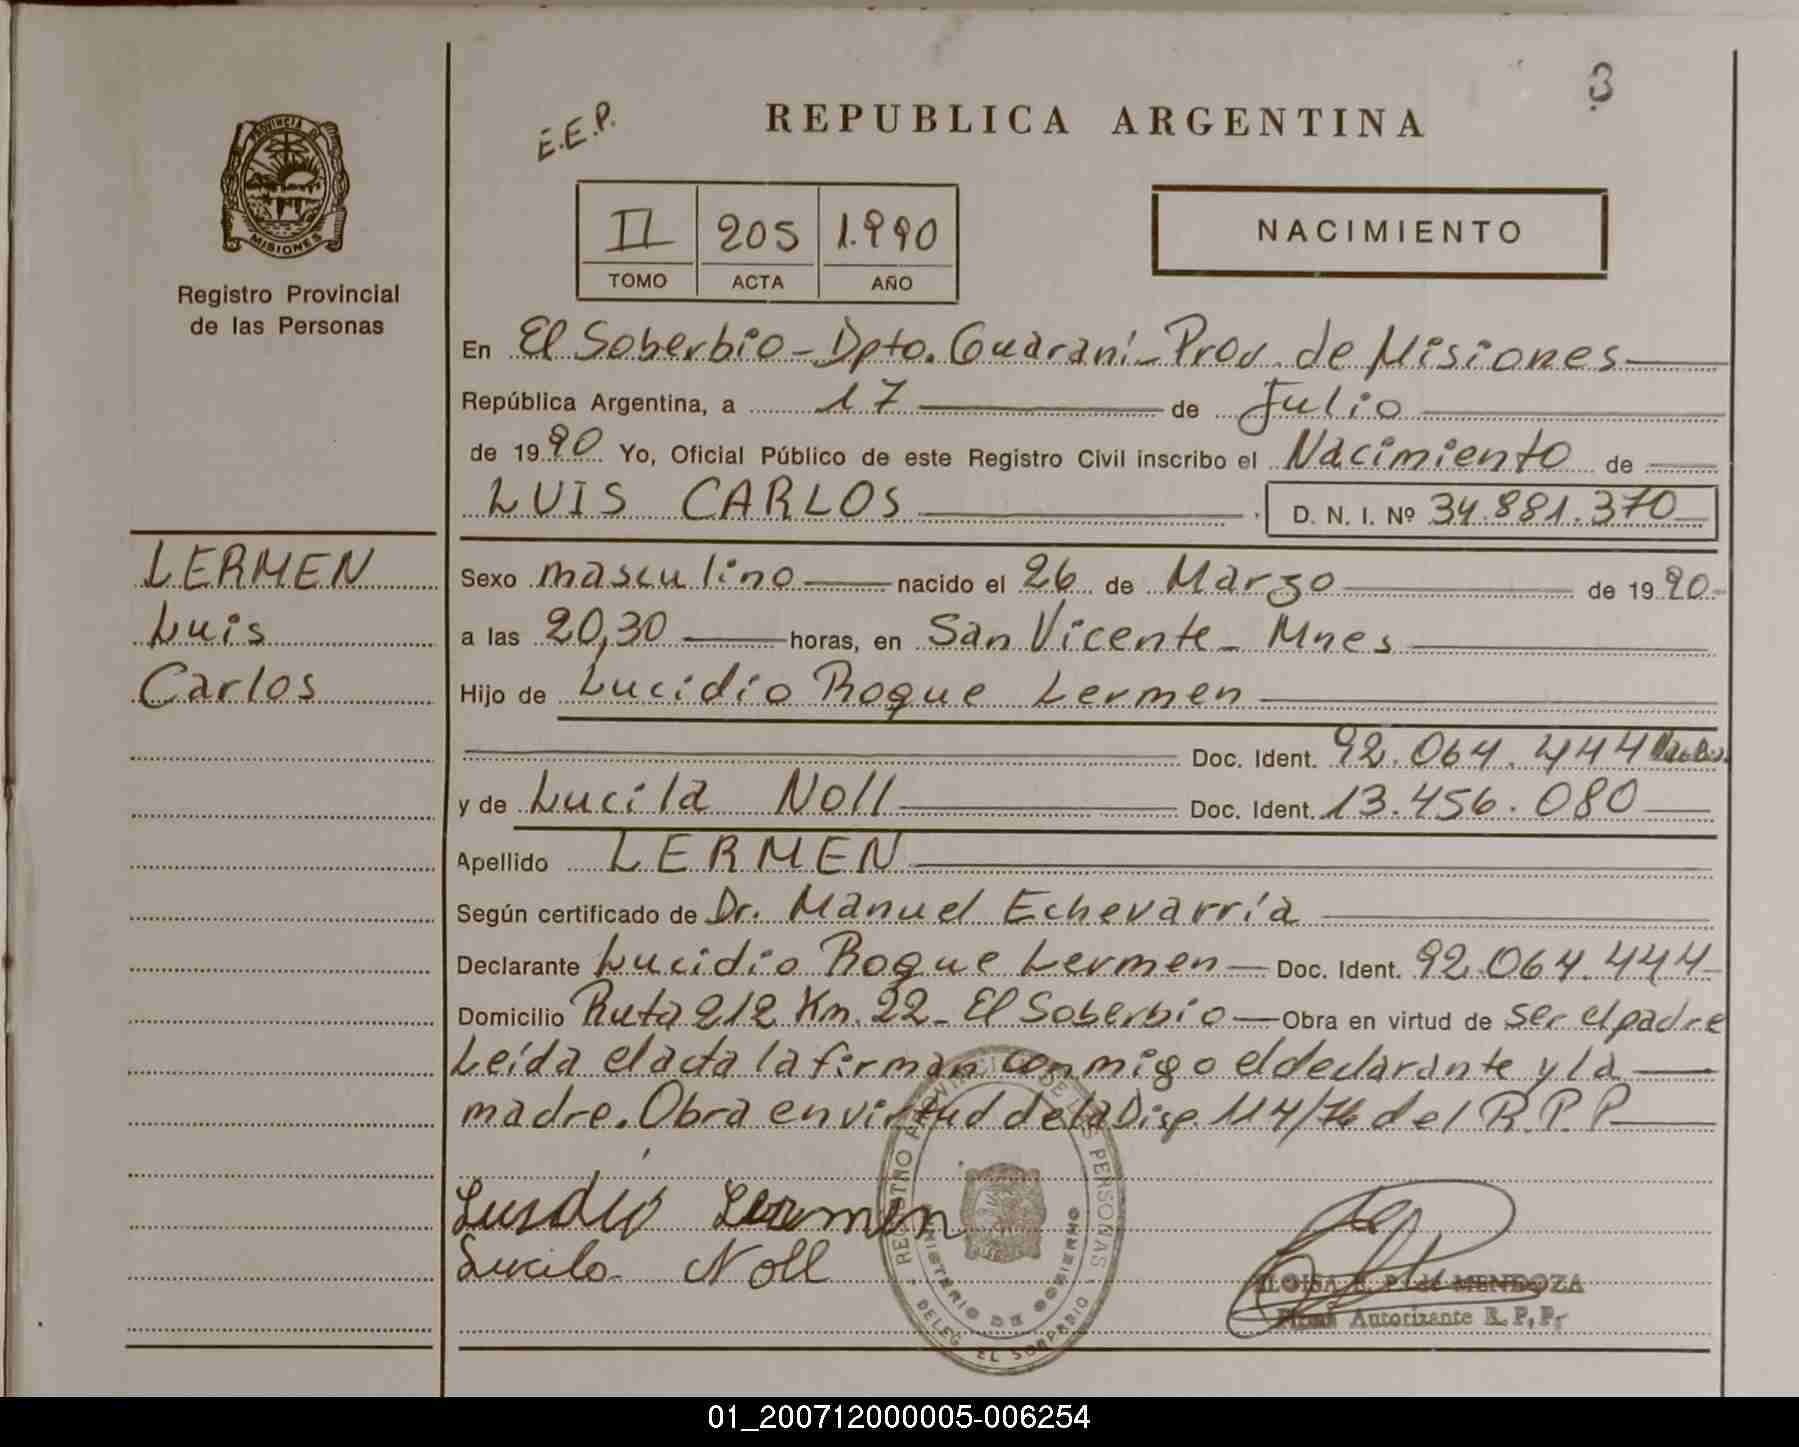 3
E.E.P.
REPUBLICA ARGENTINA
PROVINCIA DE
MISIONES
Registro Provincial
de las Personas
II 205 1.990
TOMO ACTA AÑO
NACIMIENTO
En El Soberbio - Dpto. Guaraní - Prov. de Misiones
República Argentina, a 17 de Julio
de 1990 Yo, Oficial Público de este Registro Civil inscribo el Nacimiento de
LUIS CARLOS D. N. I. Nº 34.881.370
LERMEN
Luis
Carlos
Sexo masculino nacido el 26 de Marzo de 1990-
a las 20,30 horas, en San Vicente - Mnes
Hijo de Lucidio Roque Lermen
Doc. Ident. 92.064.444
y de Lucila Noll Doc. Ident. 13.456.080
Apellido LERMEN
Según certificado de Dr. Manuel Echevarría
Declarante Lucidio Roque Lermen Doc. Ident. 92.064.444
Domicilio Ruta 212 Km. 22 - El Soberbio Obra en virtud de ser el padre
Leída el acta la firman conmigo el declarante y la
madre. Obra en virtud de la Disp. 114/76 del R.P.P
Lusdio Lermen
Lucila Noll
REGISTRO PROVINCIAL DE LAS PERSONAS
MINISTERIO DE GOBIERNO
DELEG. EL SOBERBIO
ELOISA E. P. de MENDOZA
Firma Autorizante R. P. P.
01_200712000005-006254